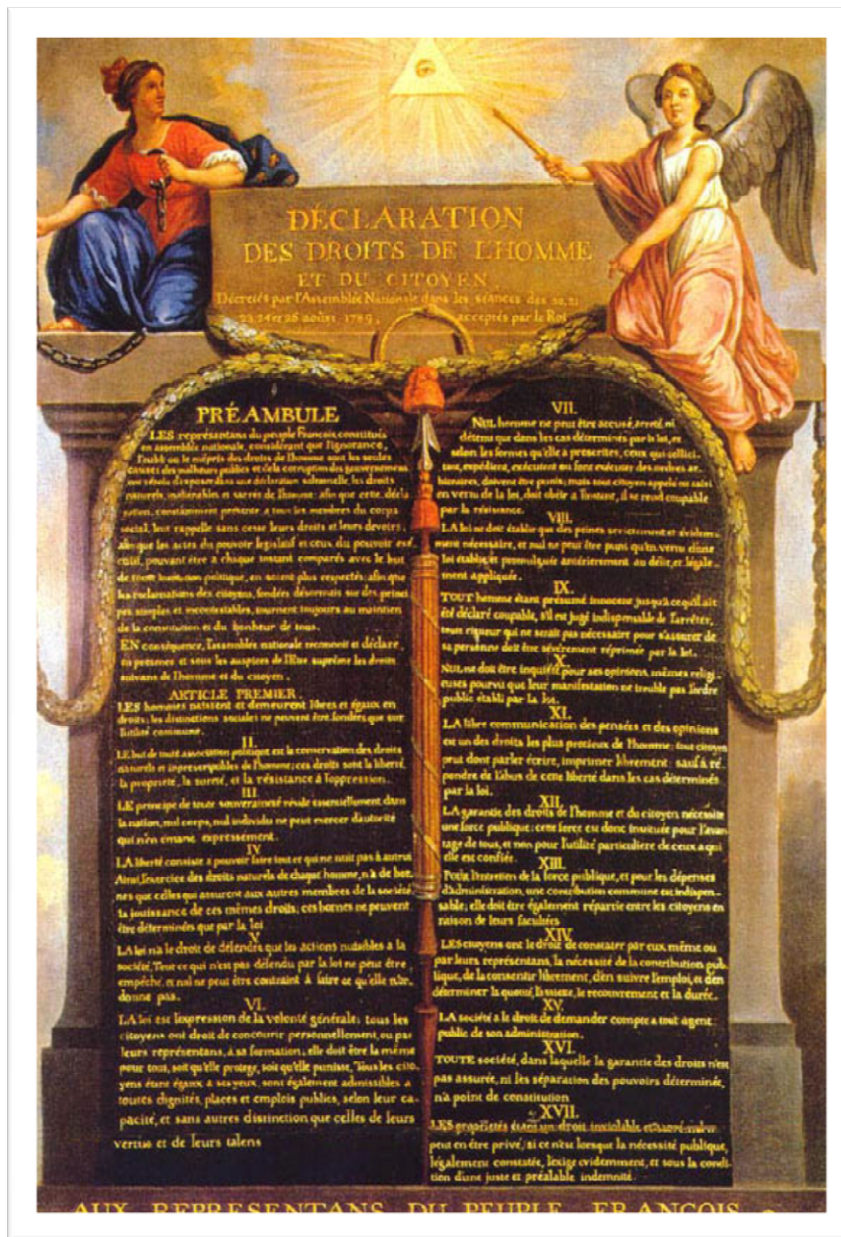 DÉCLARATION
DES DROITS DE LHOMME
ET DU CITOYEN,
Décretés par l'Assemblée Nationale dans les séances des 20, 21
23, 24 et 26 août 1789, acceptés par le Roi
PRÉAMBULE
LES représentans du peuple François, constitués
en assemblée nationale, considérant que l'ignorance,
l'oubli ou le mépris des droits de l'homme sont les seules
causes des malheurs publics et de la corruption des gouvernemens
ont résolu d'exposer dans une déclaration solemnelle, les droits
naturels, inaliénables et sacrés de l'homme: afin que cette décla
ration, constamment présente a tous les membres du corps
social, leur rappelle sans cesse leurs droits et leurs devoirs,
afin que les actes du pouvoir legislatif et ceux du pouvoir exé
cutif, pouvant être a chaque instant comparés avec le but
de toute institution politique, en soient plus respectés, afin que
les reclamations des citoyens, fondées désormais sur des princi
pes simples et incontestables, tournent toujours au maintien
de la constitution et du bonheur de tous.
EN conséquence, l'assemblée nationale reconnoit et déclare,
en presence et sous les auspices de l'Etre suprême les droits
suivans de l'homme et du citoyen.
ARTICLE PREMIER.
LES hommes naissent et demeurent libres et égaux en
droits; les distinctions sociales ne peuvent être fondées que sur
l'utilité commune.
II.
LE but de toute association politique est la conservation des droits
naturels et imprescriptibles de l'homme; ces droits sont la liberté,
la propriété, la sureté, et la résistance à l'oppression.
III.
LE principe de toute souveraineté réside essentiellement dans
la nation, nul corps, nul individu ne peut exercer d'autorité
qui n'en émane expressément.
IV.
LA liberté consiste a pouvoir faire tout ce qui ne nuit pas à autrui
Ainsi, l'exercice des droits naturels de chaque homme, n'a de bor-
nes que celles qui assurent aux autres membres de la société
la jouissance de ces mêmes droits; ces bornes ne peuvent
être déterminées que par la loi
V.
LA loi n'a le droit de défendre que les actions nuisibles à la
société. Tout ce qui n'est pas défendu par la loi ne peut être
empêché, et nul ne peut être contraint à faire ce qu'elle n'or-
donne pas.
VI.
LA loi est l'expression de la volonté générale; tous les
citoyens ont droit de concourir personnellement, ou par
leurs représentans, à sa formation; elle doit être la même
pour tous, soit qu'elle protege, soit qu'elle punisse. Tous les cito-
yens étant égaux à ses yeux, sont également admissibles a
toutes dignités, places et emplois publics, selon leur ca-
pacité, et sans autres distinction que celles de leurs
vertus et de leurs talens
VII.
NUL homme ne peut être accusé, arreté, ni
détenu que dans les cas déterminés par la loi, et
selon les formes qu'elle a prescrites, ceux qui sollici-
tent, expédient, exécutent ou font exécuter des ordres ar-
bitraires, doivent être punis; mais tout citoyen appelé ou saisi
en vertu de la loi, doit obéir a l'instant, il se rend coupable
par la résistance.
VIII.
LA loi ne doit établir que des peines strictement et évidem-
ment nécessaire, et nul ne peut être puni qu'en vertu d'une
loi établie, et promulguée antérieurement au délit, et légale-
ment appliquée.
IX.
TOUT homme étant présumé innocent jusqu'à ce qu'il ait
été déclaré coupable, s'il est jugé indispensable de l'arrêter,
toute rigueur qui ne serait pas nécessaire pour s'assurer de
sa personne doit être sévèrement réprimée par la loi.
X.
NUL ne doit être inquiété pour ses opinions, mêmes religi-
euses pourvu que leur manifestation ne trouble pas l'ordre
public établi par la loi.
XI.
LA libre communication des pensées et des opinions
est un des droits les plus precieux de l'homme; tout citoyen
peut donc parler, écrire, imprimer librement: sauf à ré-
pondre de l'abus de cette liberté dans les cas déterminés
par la loi.
XII.
LA garantie des droits de l'homme et du citoyen nécessite
une force publique: cette force est donc instituée pour l'avan-
tage de tous, et non pour l'utilité particuliere de ceux a qui
elle est confiée.
XIII.
POUR l'entretien de la force publique, et pour les dépenses
d'administration, une contribution commune est indispen-
sable; elle doit être également répartie entre les citoyens en
raison de leurs facultées
XIV.
LES citoyens ont le droit de constater par eux même ou
par leurs représentans, la nécessité de la contribution pub-
lique, de la consentir librement, d'en suivre l'emploi, et d'en
déterminer la quotité, l'assiette, le recouvrement et la durée.
XV.
LA société a le droit de demander compte a tout agent
public de son administration.
XVI.
TOUTE société, dans laquelle la garantie des droits n'est
pas assurée, ni les séparation des pouvoirs déterminée,
n'a point de constitution
XVII.
LES propriétés étant un droit inviolable et sacré, nul ne
peut en être privé, si ce n'est lorsque la nécessité publique,
légalement constatée, l'exige evidemment, et sous la condi-
tion d'une juste et préalable indemnité.
AUX REPRESENTANS DU PEUPLE FRANCOIS